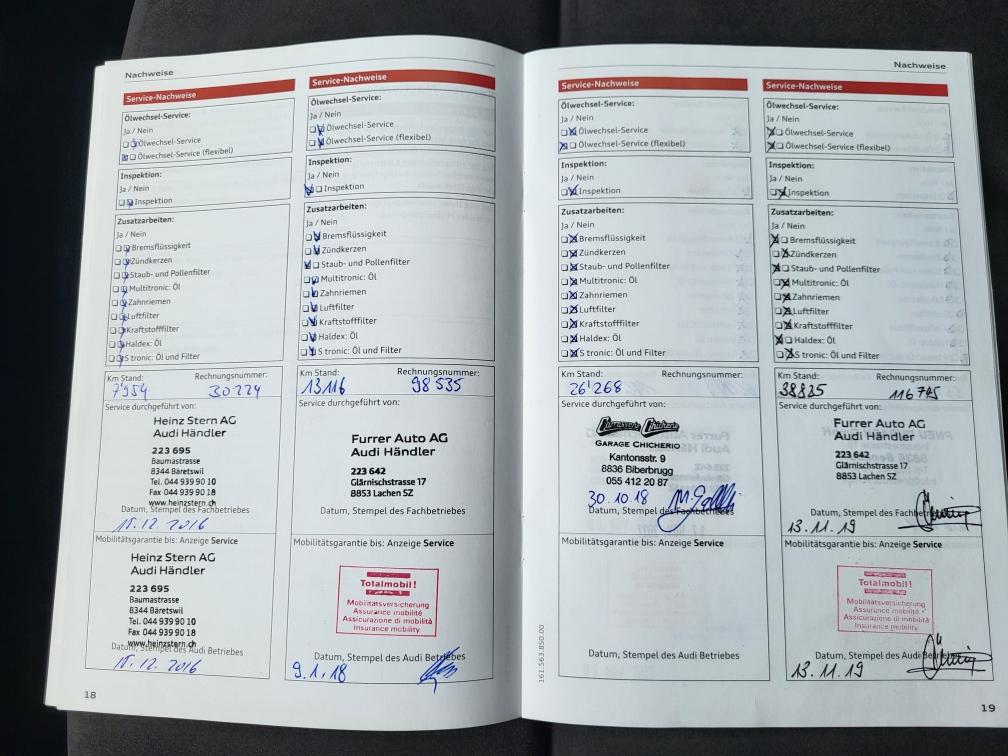 Nachweise
Service-Nachweise
Ölwechsel-Service:
Ja / Nein
Ölwechsel-Service
Ölwechsel-Service (flexibel)
Inspektion:
Ja / Nein
Inspektion
Zusatzarbeiten:
Ja / Nein
Bremsflüssigkeit
Zündkerzen
Staub- und Pollenfilter
Multitronic: Öl
Zahnriemen
Luftfilter
Kraftstofffilter
Haldex: Öl
S tronic: Öl und Filter
Km Stand: Rechnungsnummer:
7'954 30224
Service durchgeführt von:
Heinz Stern AG
Audi Händler
223 695
Baumastrasse
8344 Bäretswil
Tel. 044 939 90 10
Fax 044 939 90 18
www.heinzstern.ch
Datum, Stempel des Fachbetriebes
15.12.2016
Mobilitätsgarantie bis: Anzeige Service
Heinz Stern AG
Audi Händler
223 695
Baumastrasse
8344 Bäretswil
Tel. 044 939 90 10
Fax 044 939 90 18
www.heinzstern.ch
Datum, Stempel des Audi Betriebes
15.12.2016
18
Service-Nachweise
Ölwechsel-Service:
Ja / Nein
Ölwechsel-Service
Ölwechsel-Service (flexibel)
Inspektion:
Ja / Nein
Inspektion
Zusatzarbeiten:
Ja / Nein
Bremsflüssigkeit
Zündkerzen
Staub- und Pollenfilter
Multitronic: Öl
Zahnriemen
Luftfilter
Kraftstofffilter
Haldex: Öl
S tronic: Öl und Filter
Km Stand: Rechnungsnummer:
13116 98535
Service durchgeführt von:
Furrer Auto AG
Audi Händler
223 642
Glärnischstrasse 17
8853 Lachen SZ
Datum, Stempel des Fachbetriebes
Mobilitätsgarantie bis: Anzeige Service
Totalmobil!
Mobilitätsversicherung
Assurance mobilité
Assicurazione di mobilità
Insurance mobility
Datum, Stempel des Audi Betriebes
9.1.18
Nachweise
Service-Nachweise
Ölwechsel-Service:
Ja / Nein
Ölwechsel-Service
Ölwechsel-Service (flexibel)
Inspektion:
Ja / Nein
Inspektion
Zusatzarbeiten:
Ja / Nein
Bremsflüssigkeit
Zündkerzen
Staub- und Pollenfilter
Multitronic: Öl
Zahnriemen
Luftfilter
Kraftstofffilter
Haldex: Öl
S tronic: Öl und Filter
Km Stand: Rechnungsnummer:
26'268
Service durchgeführt von:
Carrosserie Chicherio
GARAGE CHICHERIO
Kantonsstr. 9
8836 Biberbrugg
055 412 20 87
30.10.18
Datum, Stempel des Fachbetriebes
Mobilitätsgarantie bis: Anzeige Service
Datum, Stempel des Audi Betriebes
161.563.850.00
Service-Nachweise
Ölwechsel-Service:
Ja / Nein
Ölwechsel-Service
Ölwechsel-Service (flexibel)
Inspektion:
Ja / Nein
Inspektion
Zusatzarbeiten:
Ja / Nein
Bremsflüssigkeit
Zündkerzen
Staub- und Pollenfilter
Multitronic: Öl
Zahnriemen
Luftfilter
Kraftstofffilter
Haldex: Öl
S tronic: Öl und Filter
Km Stand: Rechnungsnummer:
38835 116745
Service durchgeführt von:
Furrer Auto AG
Audi Händler
223 642
Glärnischstrasse 17
8853 Lachen SZ
Datum, Stempel des Fachbetriebes
13.11.19
Mobilitätsgarantie bis: Anzeige Service
Totalmobil!
Mobilitätsversicherung
Assurance mobilité
Assicurazione di mobilità
Insurance mobility
Datum, Stempel des Audi Betriebes
13.11.19
19